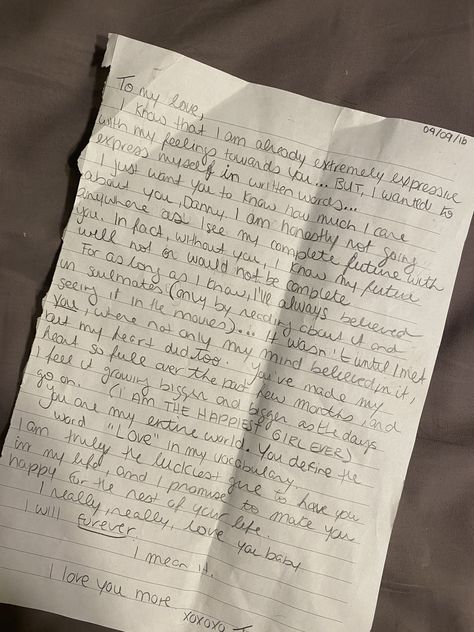 09/09/16
To my love,
I know that I am already extremely expressive
with my feelings towards you... BUT, I wanted to
express myself in written words...
I just want you to know how much I care
about you, Danny. I am honestly not going
anywhere as I see my complete future with
you. In fact, without you, I know my future
will not or would not be complete.
For as long as I know, I've always believed
in soulmates (only by reading about it and
seeing it in the movies)... It wasn't until I met
you, where not only my mind believed in it,
but my heart did too. You've made my
heart so full over the past few months, and
I feel it growing bigger and bigger as the days
go on. (I AM THE HAPPIEST GIRL EVER)
You are my entire world. You define the
word "LOVE" in my vocabulary.
I am truly the luckiest one to have you
in my life, and I promise to make you
happy for the rest of your life.
I really, really, love you baby
I will forever.
I mean it.
I love you more
xoxoxo